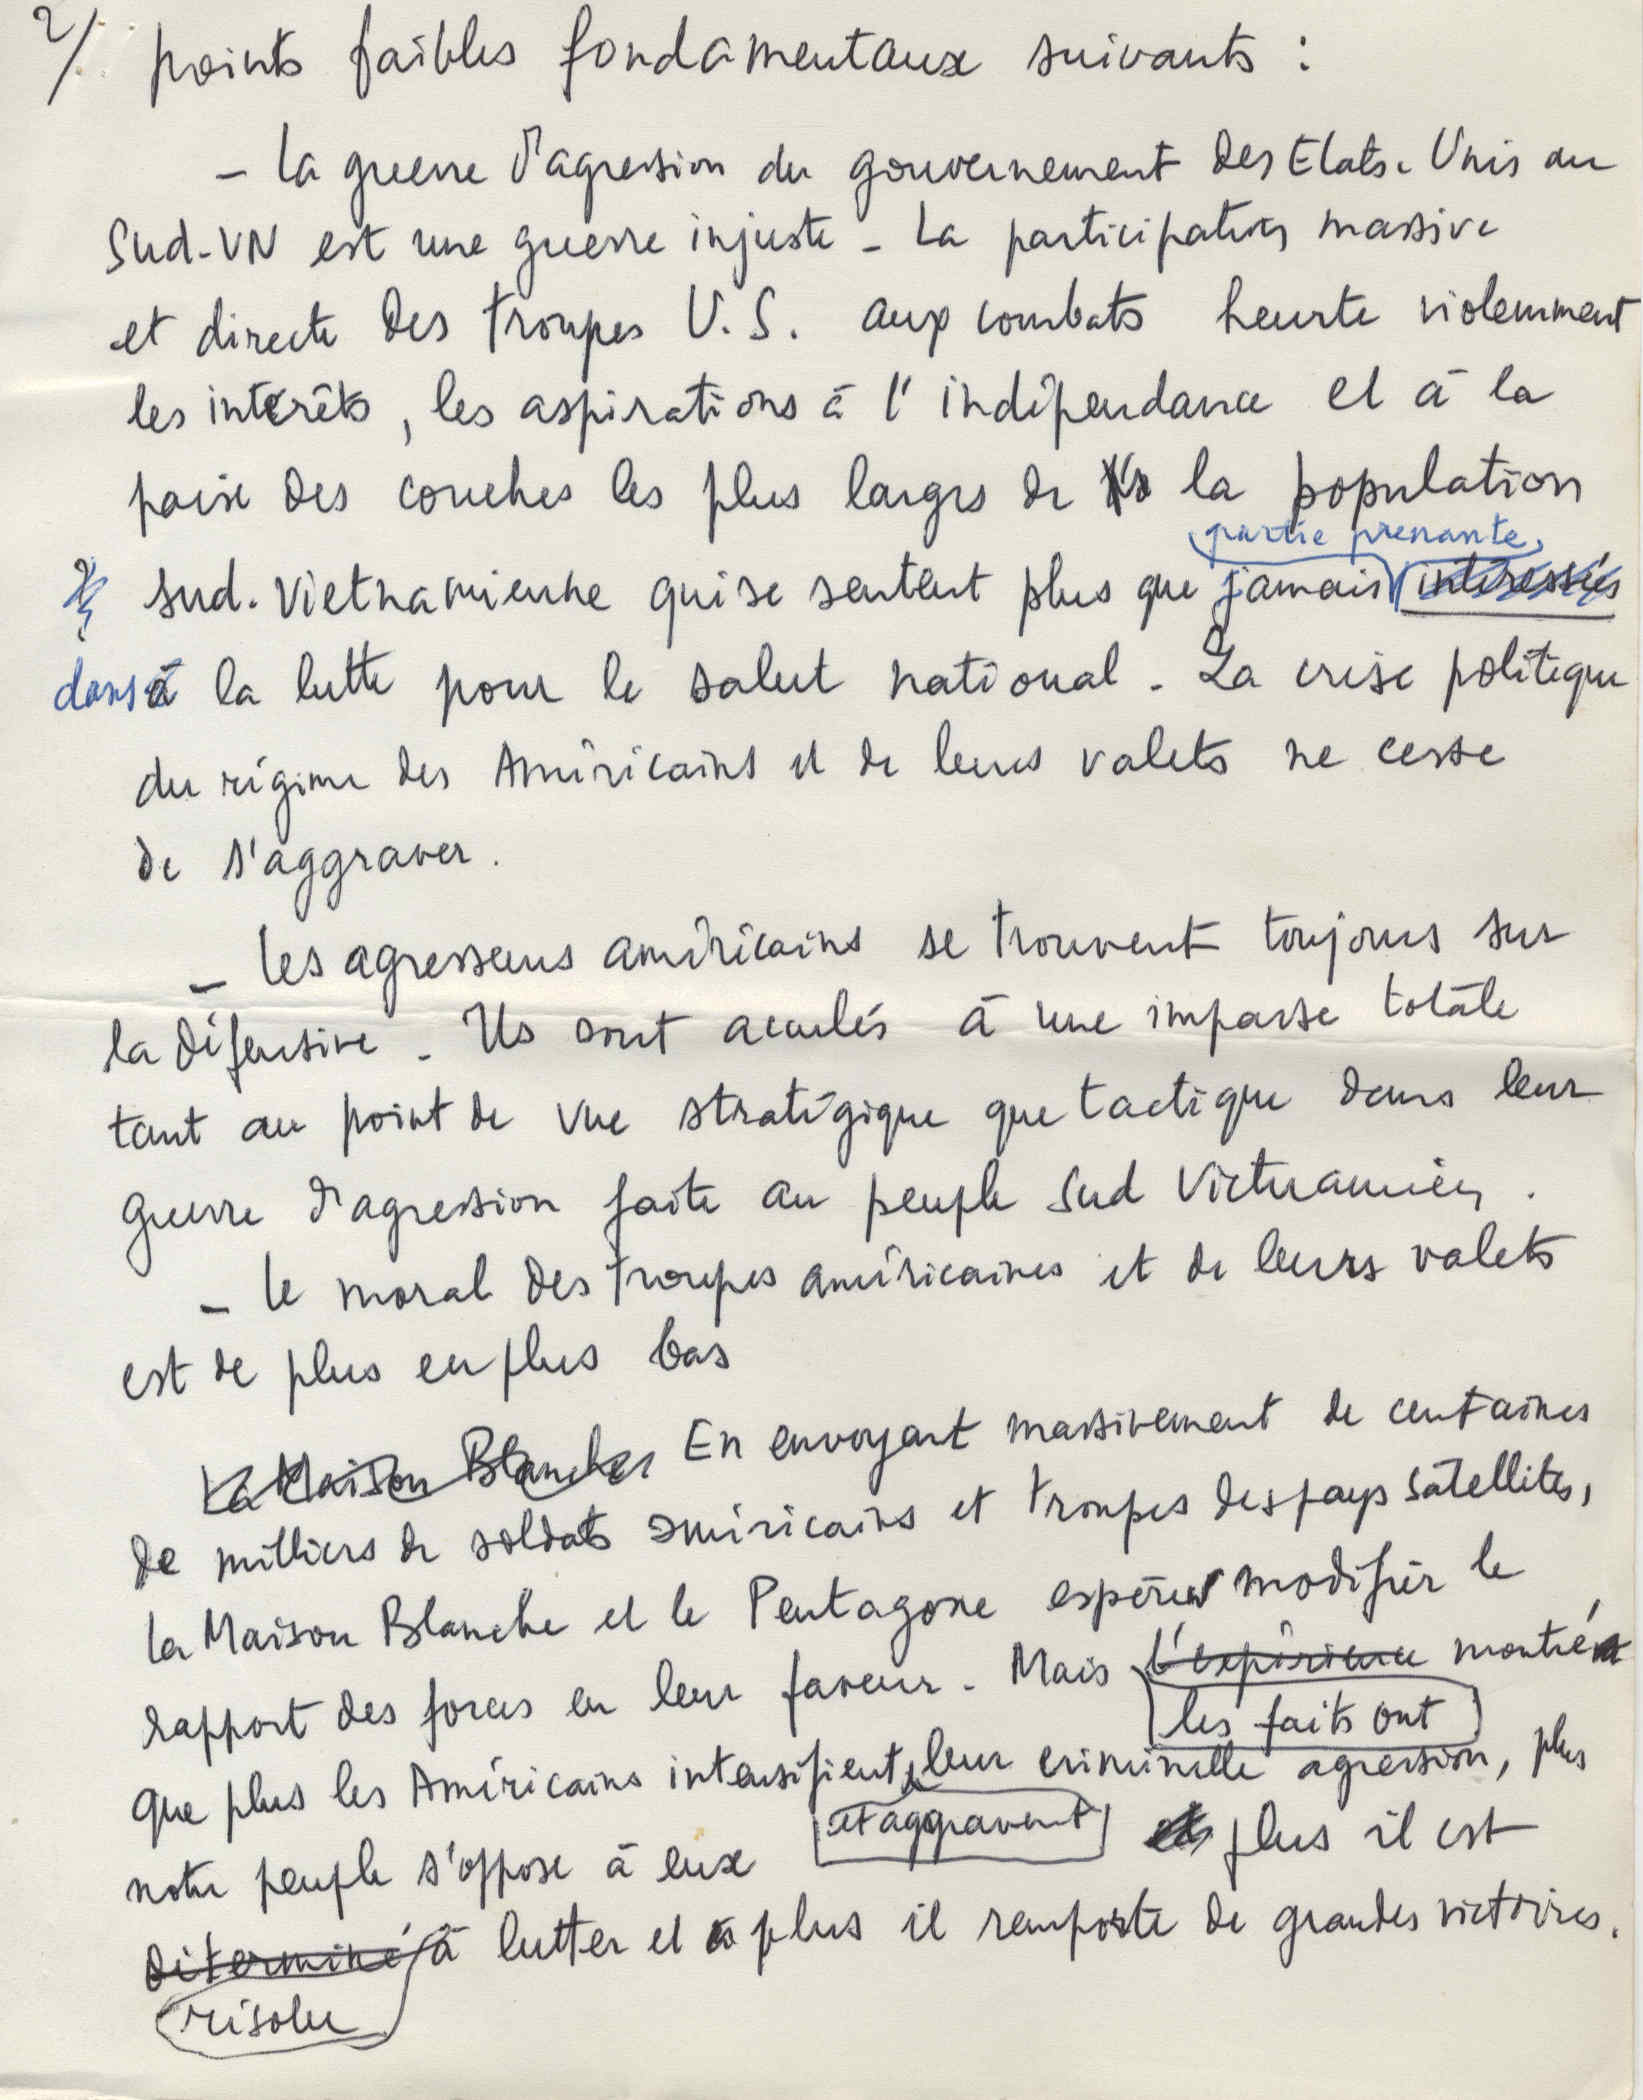 2/ points faibles fondamentaux suivants :
- la guerre d'agression du gouvernement des Etats-Unis au
Sud-VN est une guerre injuste - La participation massive
et directe des troupes U.S. aux combats heurte violemment
les intérêts, les aspirations à l'indépendance et à la
paix des couches les plus larges de la population
partie prenante
sud-vietnamienne qui se sentent plus que jamais intéressées
dans à la lutte pour le salut national. La crise politique
du régime des Américains et de leurs valets ne cesse
de s'aggraver.
- les agresseurs américains se trouvent toujours sur
la défensive. Ils sont acculés à une impasse totale
tant au point de vue stratégique que tactique dans leur
guerre d'agression faite au peuple Sud Vietnamien.
- le moral des troupes américaines et de leurs valets
est de plus en plus bas
La Maison Blanche En envoyant massivement de centaines
de milliers de soldats américains et troupes des pays satellites,
la Maison Blanche et le Pentagone espéraient modifier le
rapport des forces en leur faveur. Mais l'expérience montré
les faits ont
que plus les Américains intensifient leur criminelle agression, plus
et aggravent
notre peuple s'oppose à eux et plus il est
déterminé à lutter et plus il remporte de grandes victoires.
résolu